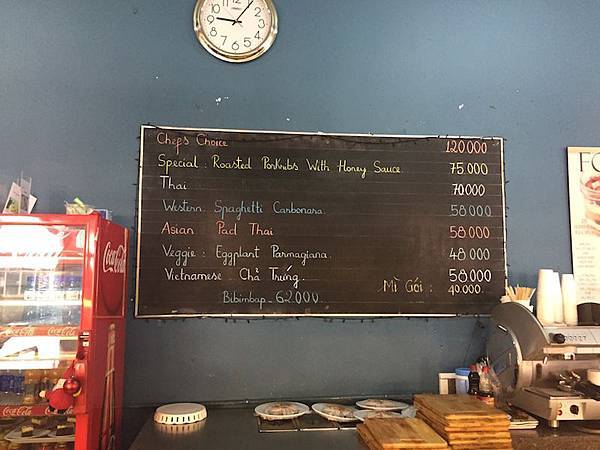 Chefs Choice 120000
Special : Roasted Porkribs With Honey Sauce. 75.000
Thai 70000
Western: Spaghetti Carbonara. 58000
Asian Pad Thai 58000
Veggie : Eggplant Parmagiana. 48000
Vietnamese - Chả Trứng. 58000
Mì Gói : 40.000.
Bibimbap - 62000
Coca-Cola
Coca-Cola
Coca-Cola
Coca-Cola
12
1
2
3
4
5
6
7
8
9
10
11